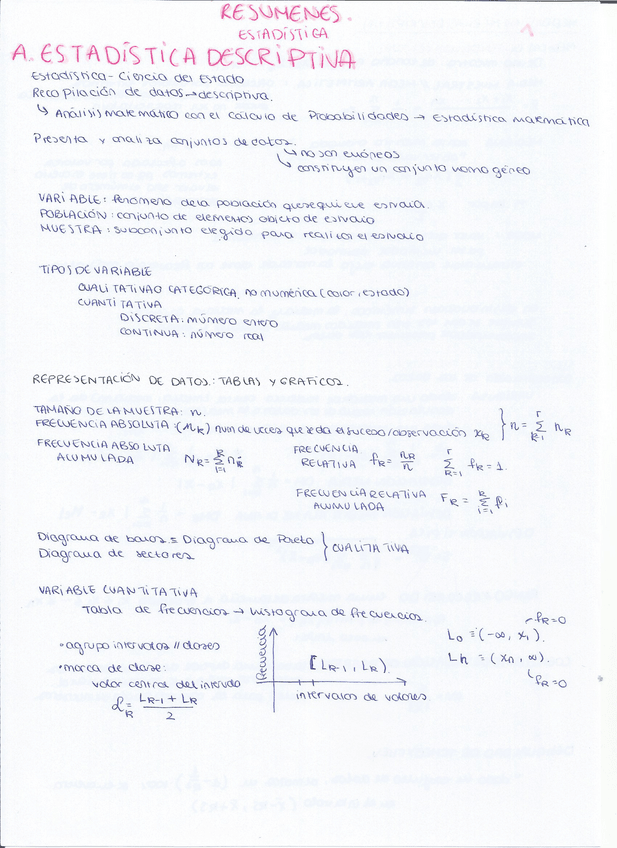 RESUMENES.
ESTADÍSTICA
1
A. ESTADÍSTICA DESCRIPTIVA
Estadística - Ciencia del Estado
Recopilación de datos → descriptiva.
↳ Análisis matemático con el cálculo de Probabilidades → Estadística matemática
Presenta y analiza conjuntos de datos.
↳ no son erróneos
↳ constituyen un conjunto homogéneo
VARIABLE: fenómeno de la población que se quiere estudiar.
POBLACIÓN: conjunto de elementos objeto de estudio
MUESTRA: subconjunto elegido para realizar el estudio
TIPOS DE VARIABLE
CUALITATIVA O CATEGÓRICA. no numérica (color, estado)
CUANTITATIVA
DISCRETA: número entero
CONTINUA: número real
REPRESENTACIÓN DE DATOS: TABLAS Y GRAFICOS.
TAMAÑO DE LA MUESTRA: n.
FRECUENCIA ABSOLUTA: (nR) num de veces que se da el suceso/observación xR } n = Σ nR
FRECUENCIA ABSOLUTA ACUMULADA NR = Σ ni
FRECUENCIA RELATIVA fR = nR/n Σ fR = 1.
FRECUENCIA RELATIVA ACUMULADA FR = Σ fi
Diagrama de barras = Diagrama de Pareto } CUALITATIVA
Diagrama de sectores.
VARIABLE CUANTITATIVA
Tabla de frecuencias → histograma de frecuencias.
• agrupo intervalos // clases
• marca de clase:
valor central del intervalo
R = (LR-1 + LR)/2
frecuencia
[LR-1, LR).
intervalos de valores.
fR=0
L0 = (-∞, x1).
Ln = (xn, ∞).
fR=0